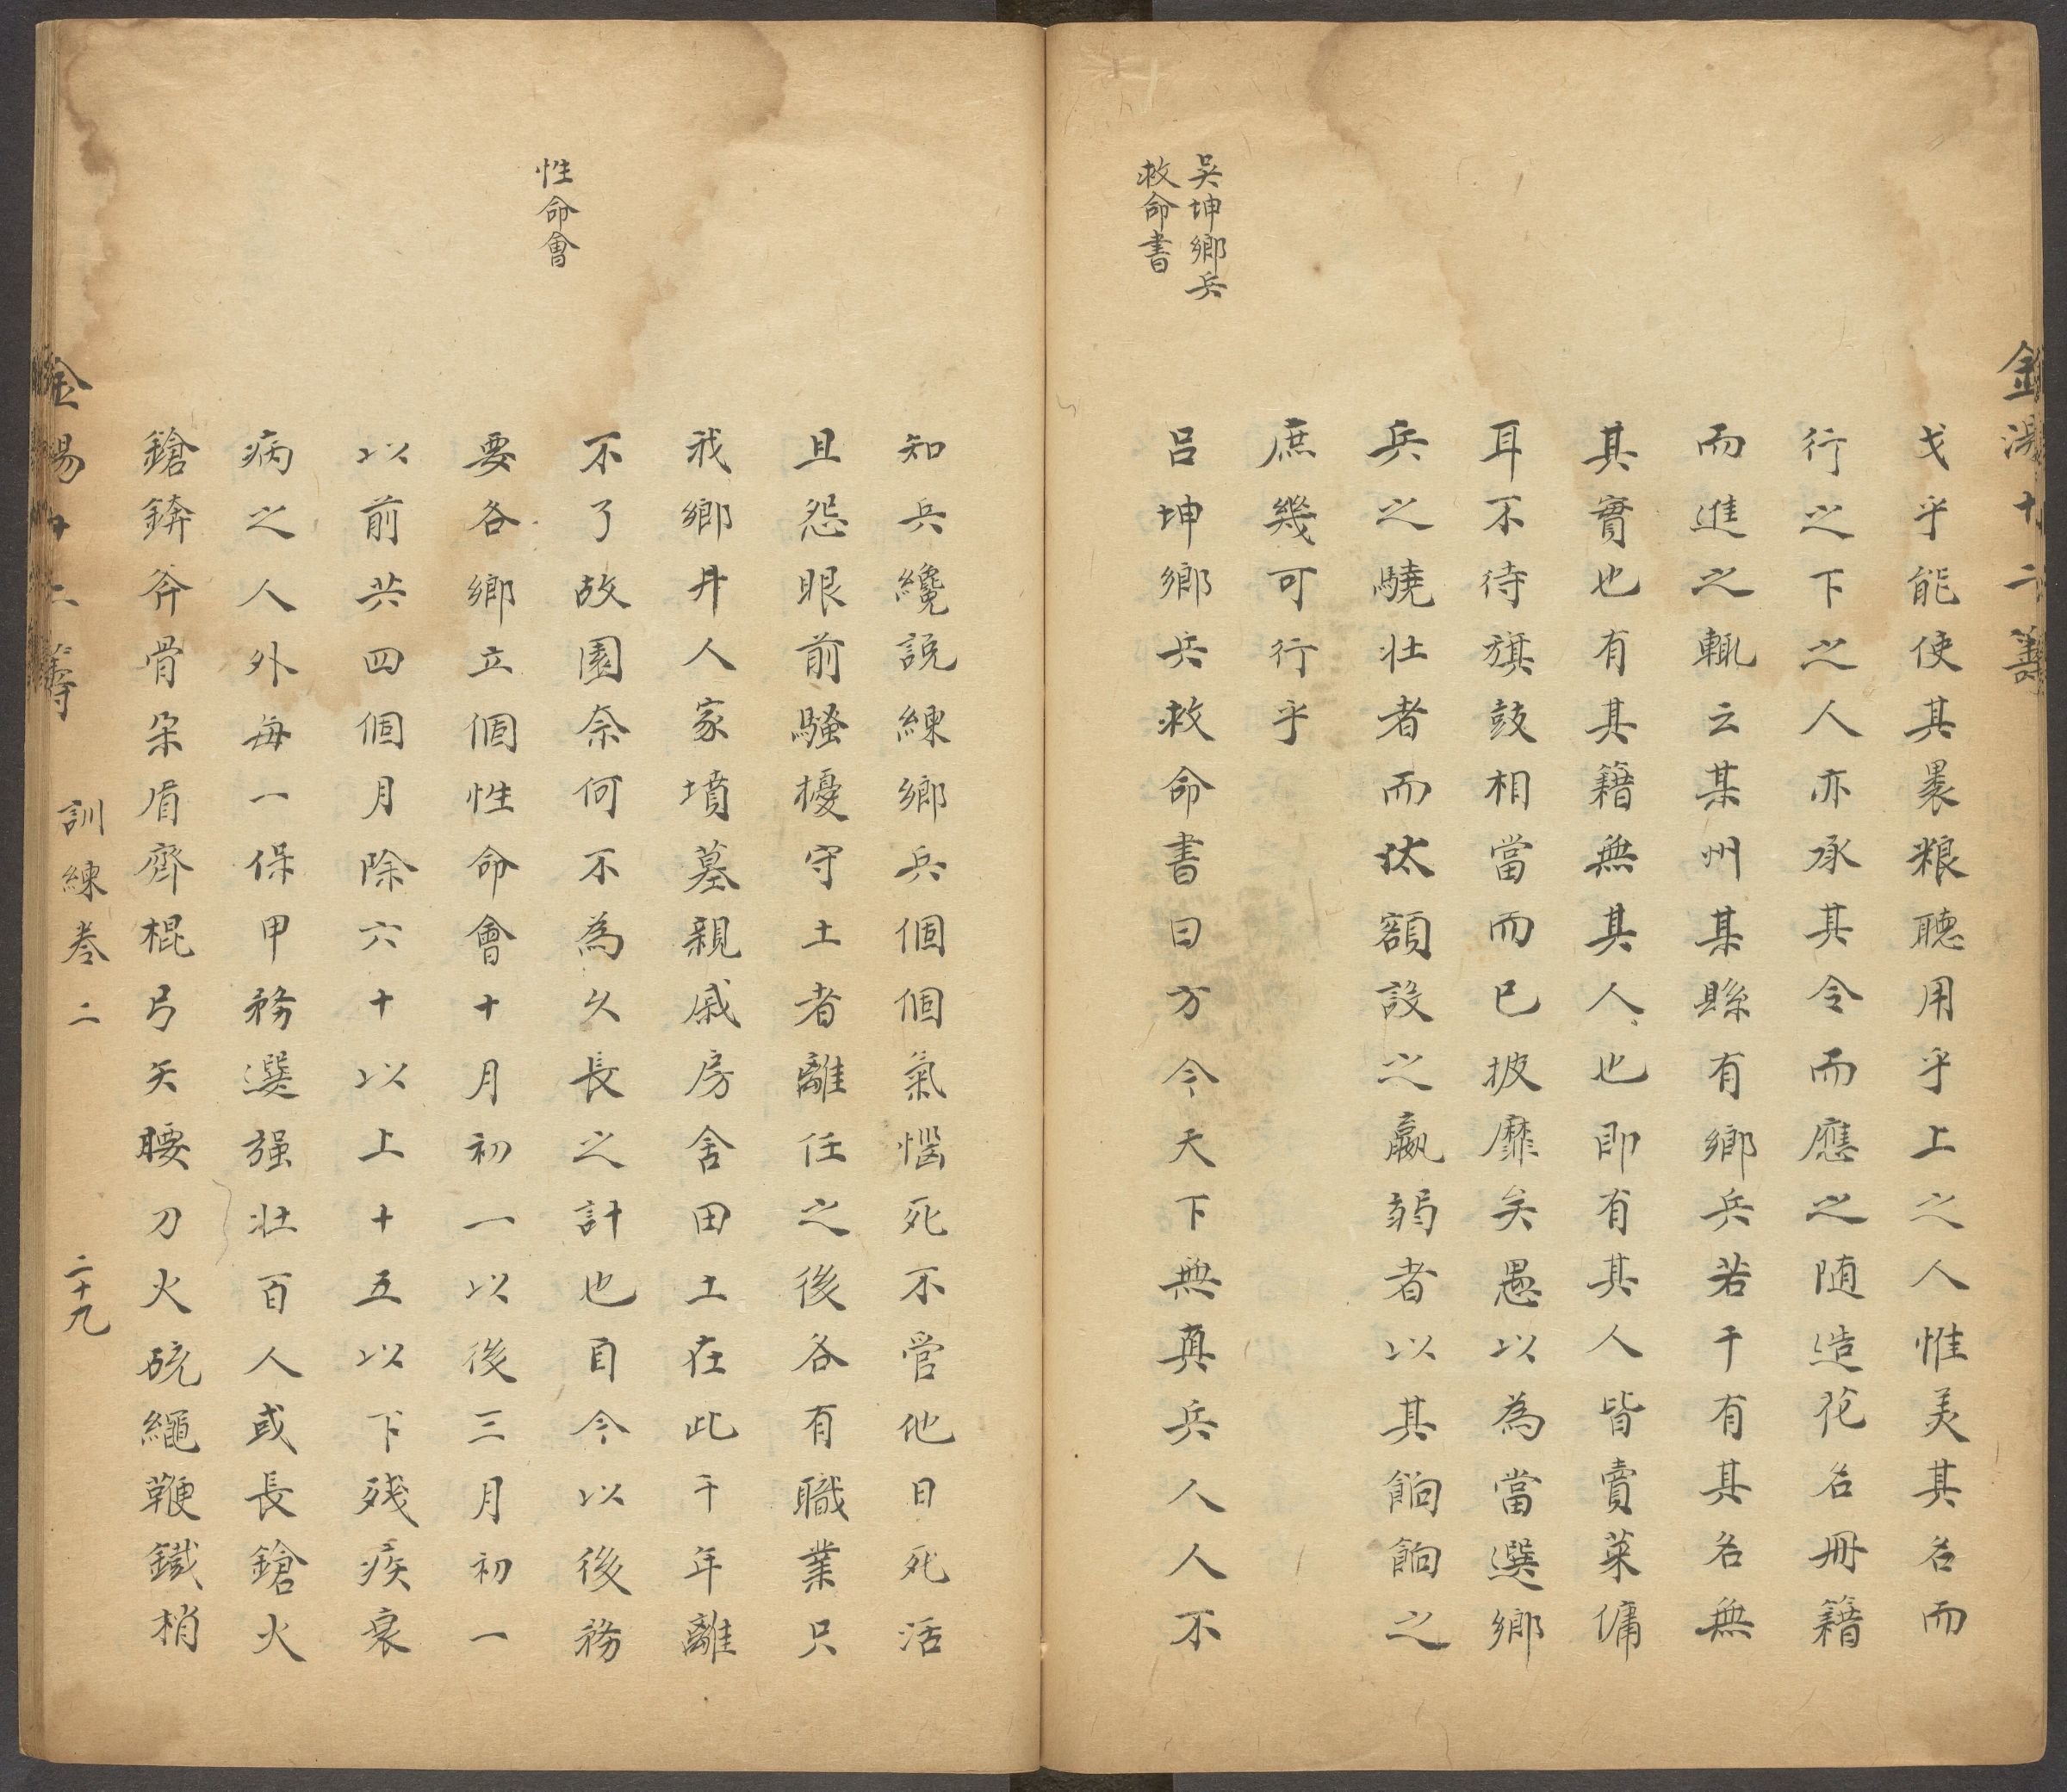 金湯十二籌
戈乎能使其褁粮聽用乎上之人惟美其名而
行之下之人亦承其令而應之随造花名冊籍
而進之輒云某州某縣有鄉兵若干有其名無
其實也有其籍無其人也即有其人皆賣菜傭
耳不待旗鼓相當而已披靡矣愚以為當選鄉
兵之驍壯者而汰額設之羸弱者以其餉餉之
庶幾可行乎
吳坤鄉兵
救命書
呂坤鄉兵救命書曰方今天下無真兵人人不
知兵纔説練鄉兵個個氣惱死不管他日死活
且怨眼前騷擾守土者離任之後各有職業只
我鄉井人家墳墓親戚房舍田土在此千年離
不了故園奈何不為久長之計也自今以後務
性命會
要各鄉立個性命會十月初一以後三月初一
以前共四個月除六十以上十五以下残疾衰
病之人外每一保甲務選强壯百人或長鎗火
鎗錛斧骨朵眉齊棍弓矢腰刀火硫繩鞭鐵梢
金湯十二籌
訓練卷二
二十九